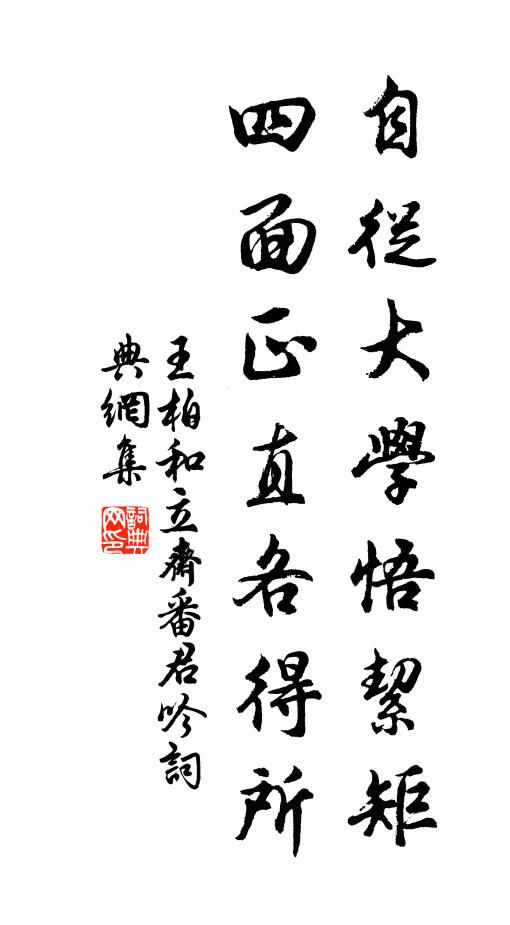 自從大學悟絜矩
四面正直各得所
王柏和立齋番君吟詞
典網集
詞典網印